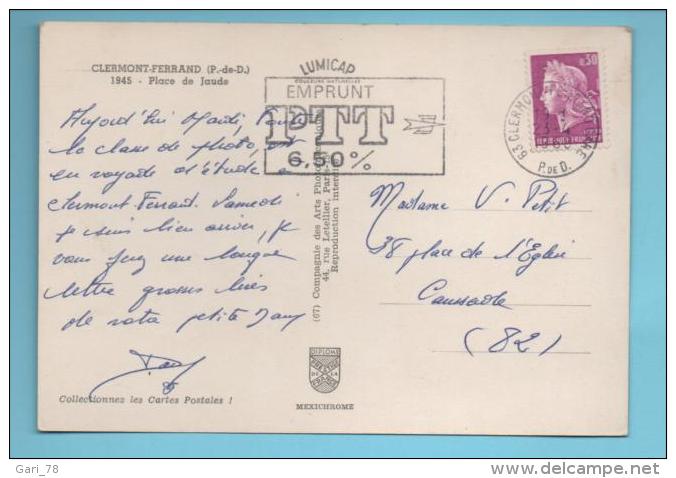 CLERMONT-FERRAND (P.-de-D.)
1945 - Place de Jaude
Aujourd'hui Mardi, toute
la classe de photo, est
en voyage d'étude a
Clermont-Ferrant. Samedi
je suis bien arrivé, je
vous fais une longue
lettre grosses bises
de votre petite Dany
Dany
Collectionnez les Cartes Postales !
LUMICAP
COULEURS NATURELLES
EMPRUNT
PTT
6,60%
(67) Compagnie des Arts Photomécaniques
44, rue Letellier, Paris
Reproduction interdite
DIPLOME
PRESTIGE
DE LA
FRANCE
MEXICHROME
0,30
REPUBLIQUE FRANÇAISE
63 CLERMONT-FERRAND GARE
P. DE D.
Madame V. Petit
38 place de l'Eglise
Caussade
(82)
Gari_78
http://www.delcampe.net